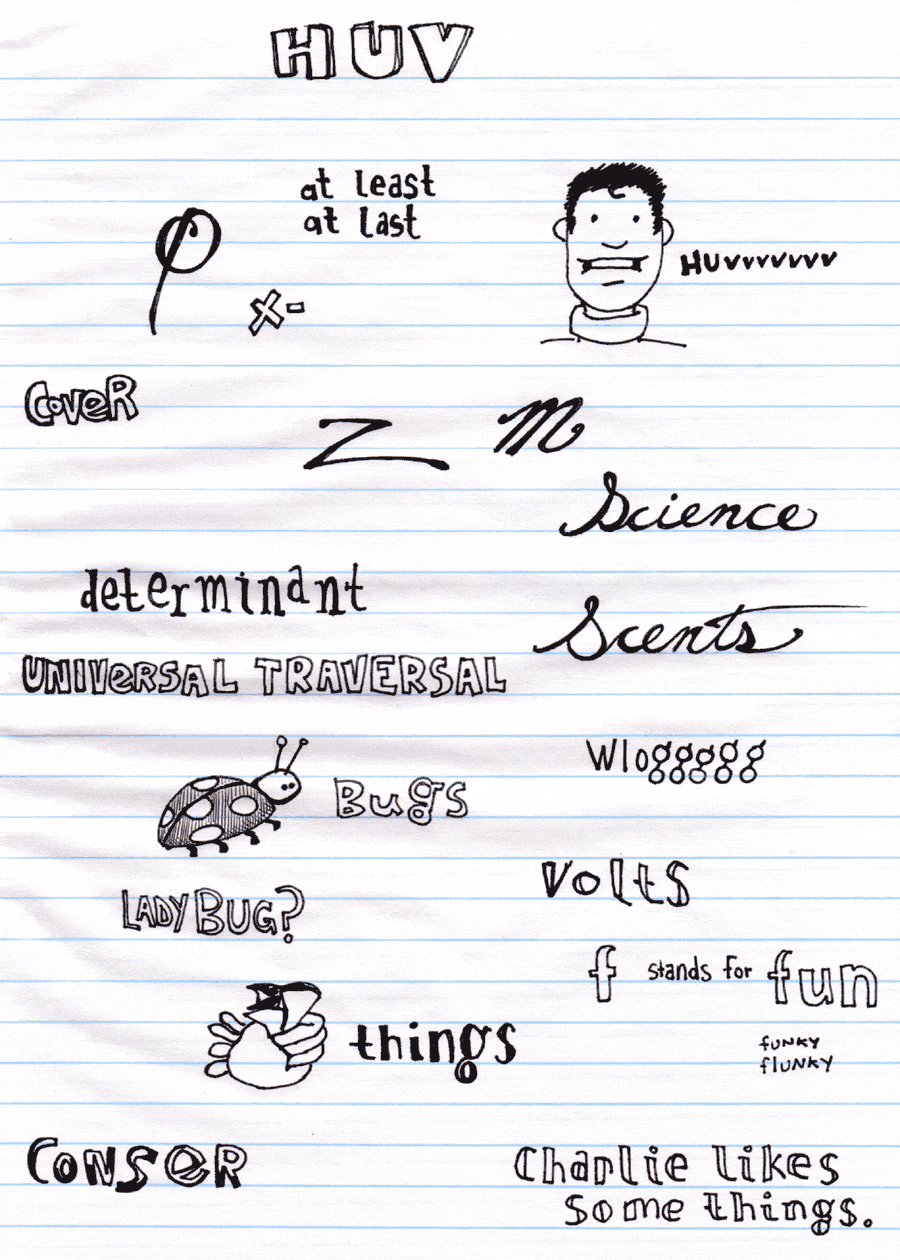 HUV
at least
at last
φ
HUVvvvvvvv
x-
Cover
Z
m
Science
determinant
Scents
UNIVERSAL TRAVERSAL
Wloggggg
Bugs
Volts
LADY BUG?
f stands for fun
things
funky
flunky
Conser
Charlie likes
some things.